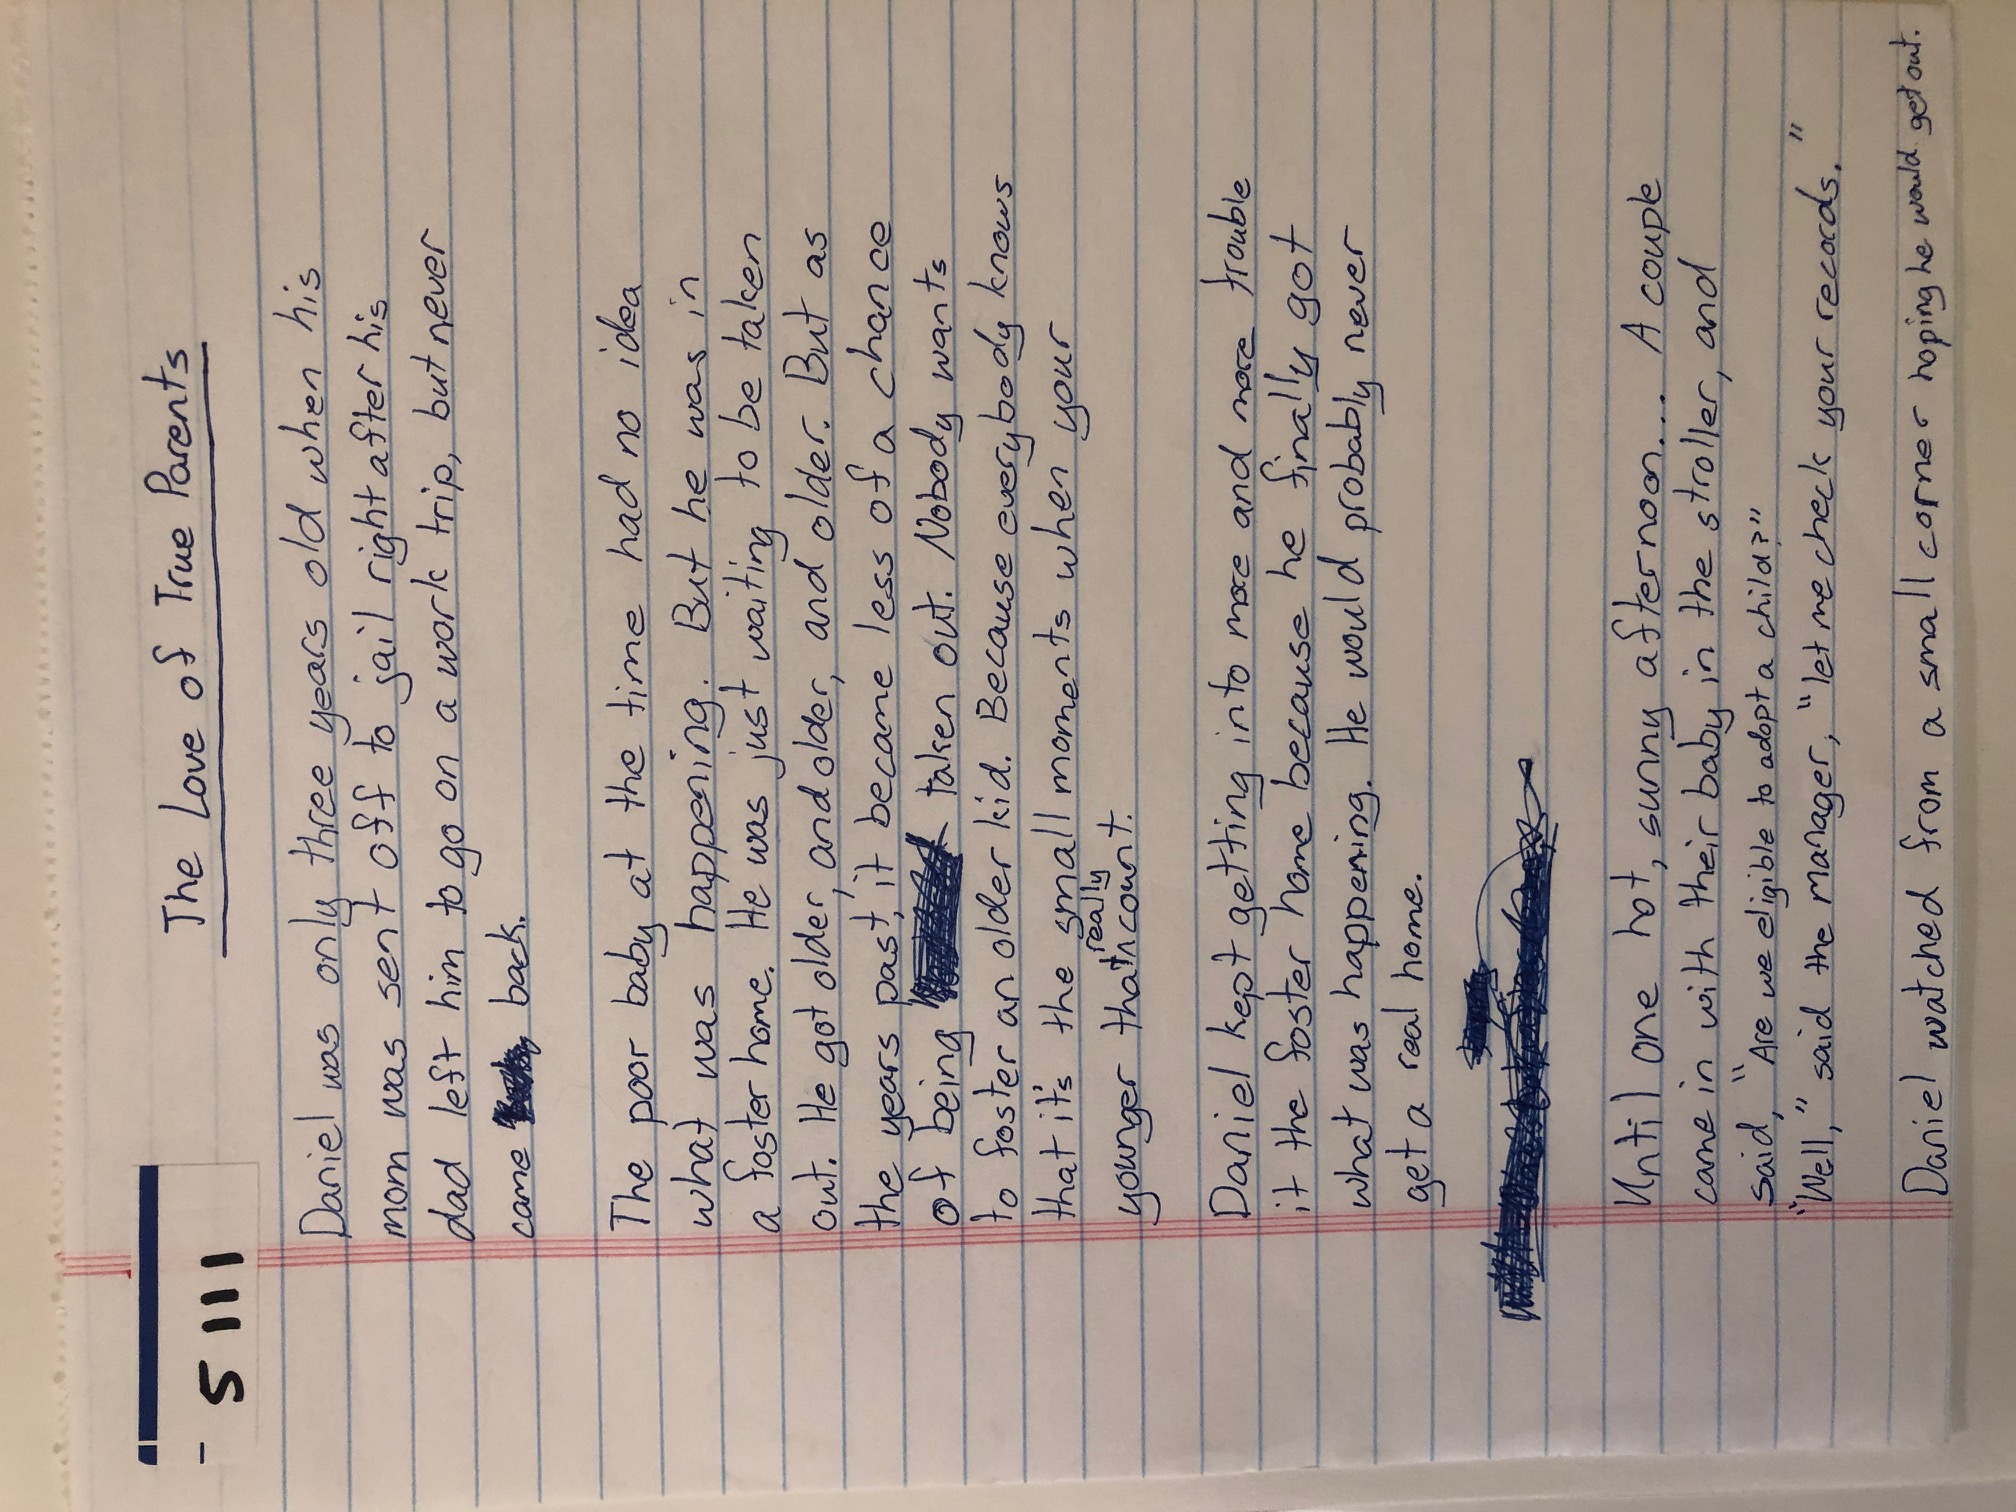 The Love of True Parents
5111
Daniel was only three years old when his
mom was sent off to jail right after his
dad left him to go on a work trip, but never
came back.
The poor baby at the time had no idea
what was happening. But he was in
a foster home. He was just waiting to be taken
out. He got older, and older, and older. But as
the years past, it became less of a chance
of being taken out. Nobody wants
to foster an older kid. Because everybody knows
that it's the small moments when your
younger that really count.
Daniel kept getting into more and more trouble
it the foster home because he finally got
what was happening. He would probably never
get a real home.
Until one hot, sunny afternoon... A couple
came in with their baby in the stroller, and
said, "Are we eligible to adopt a child?"
"Well," said the manager, "let me check your records."
Daniel watched from a small corner hoping he would get out.